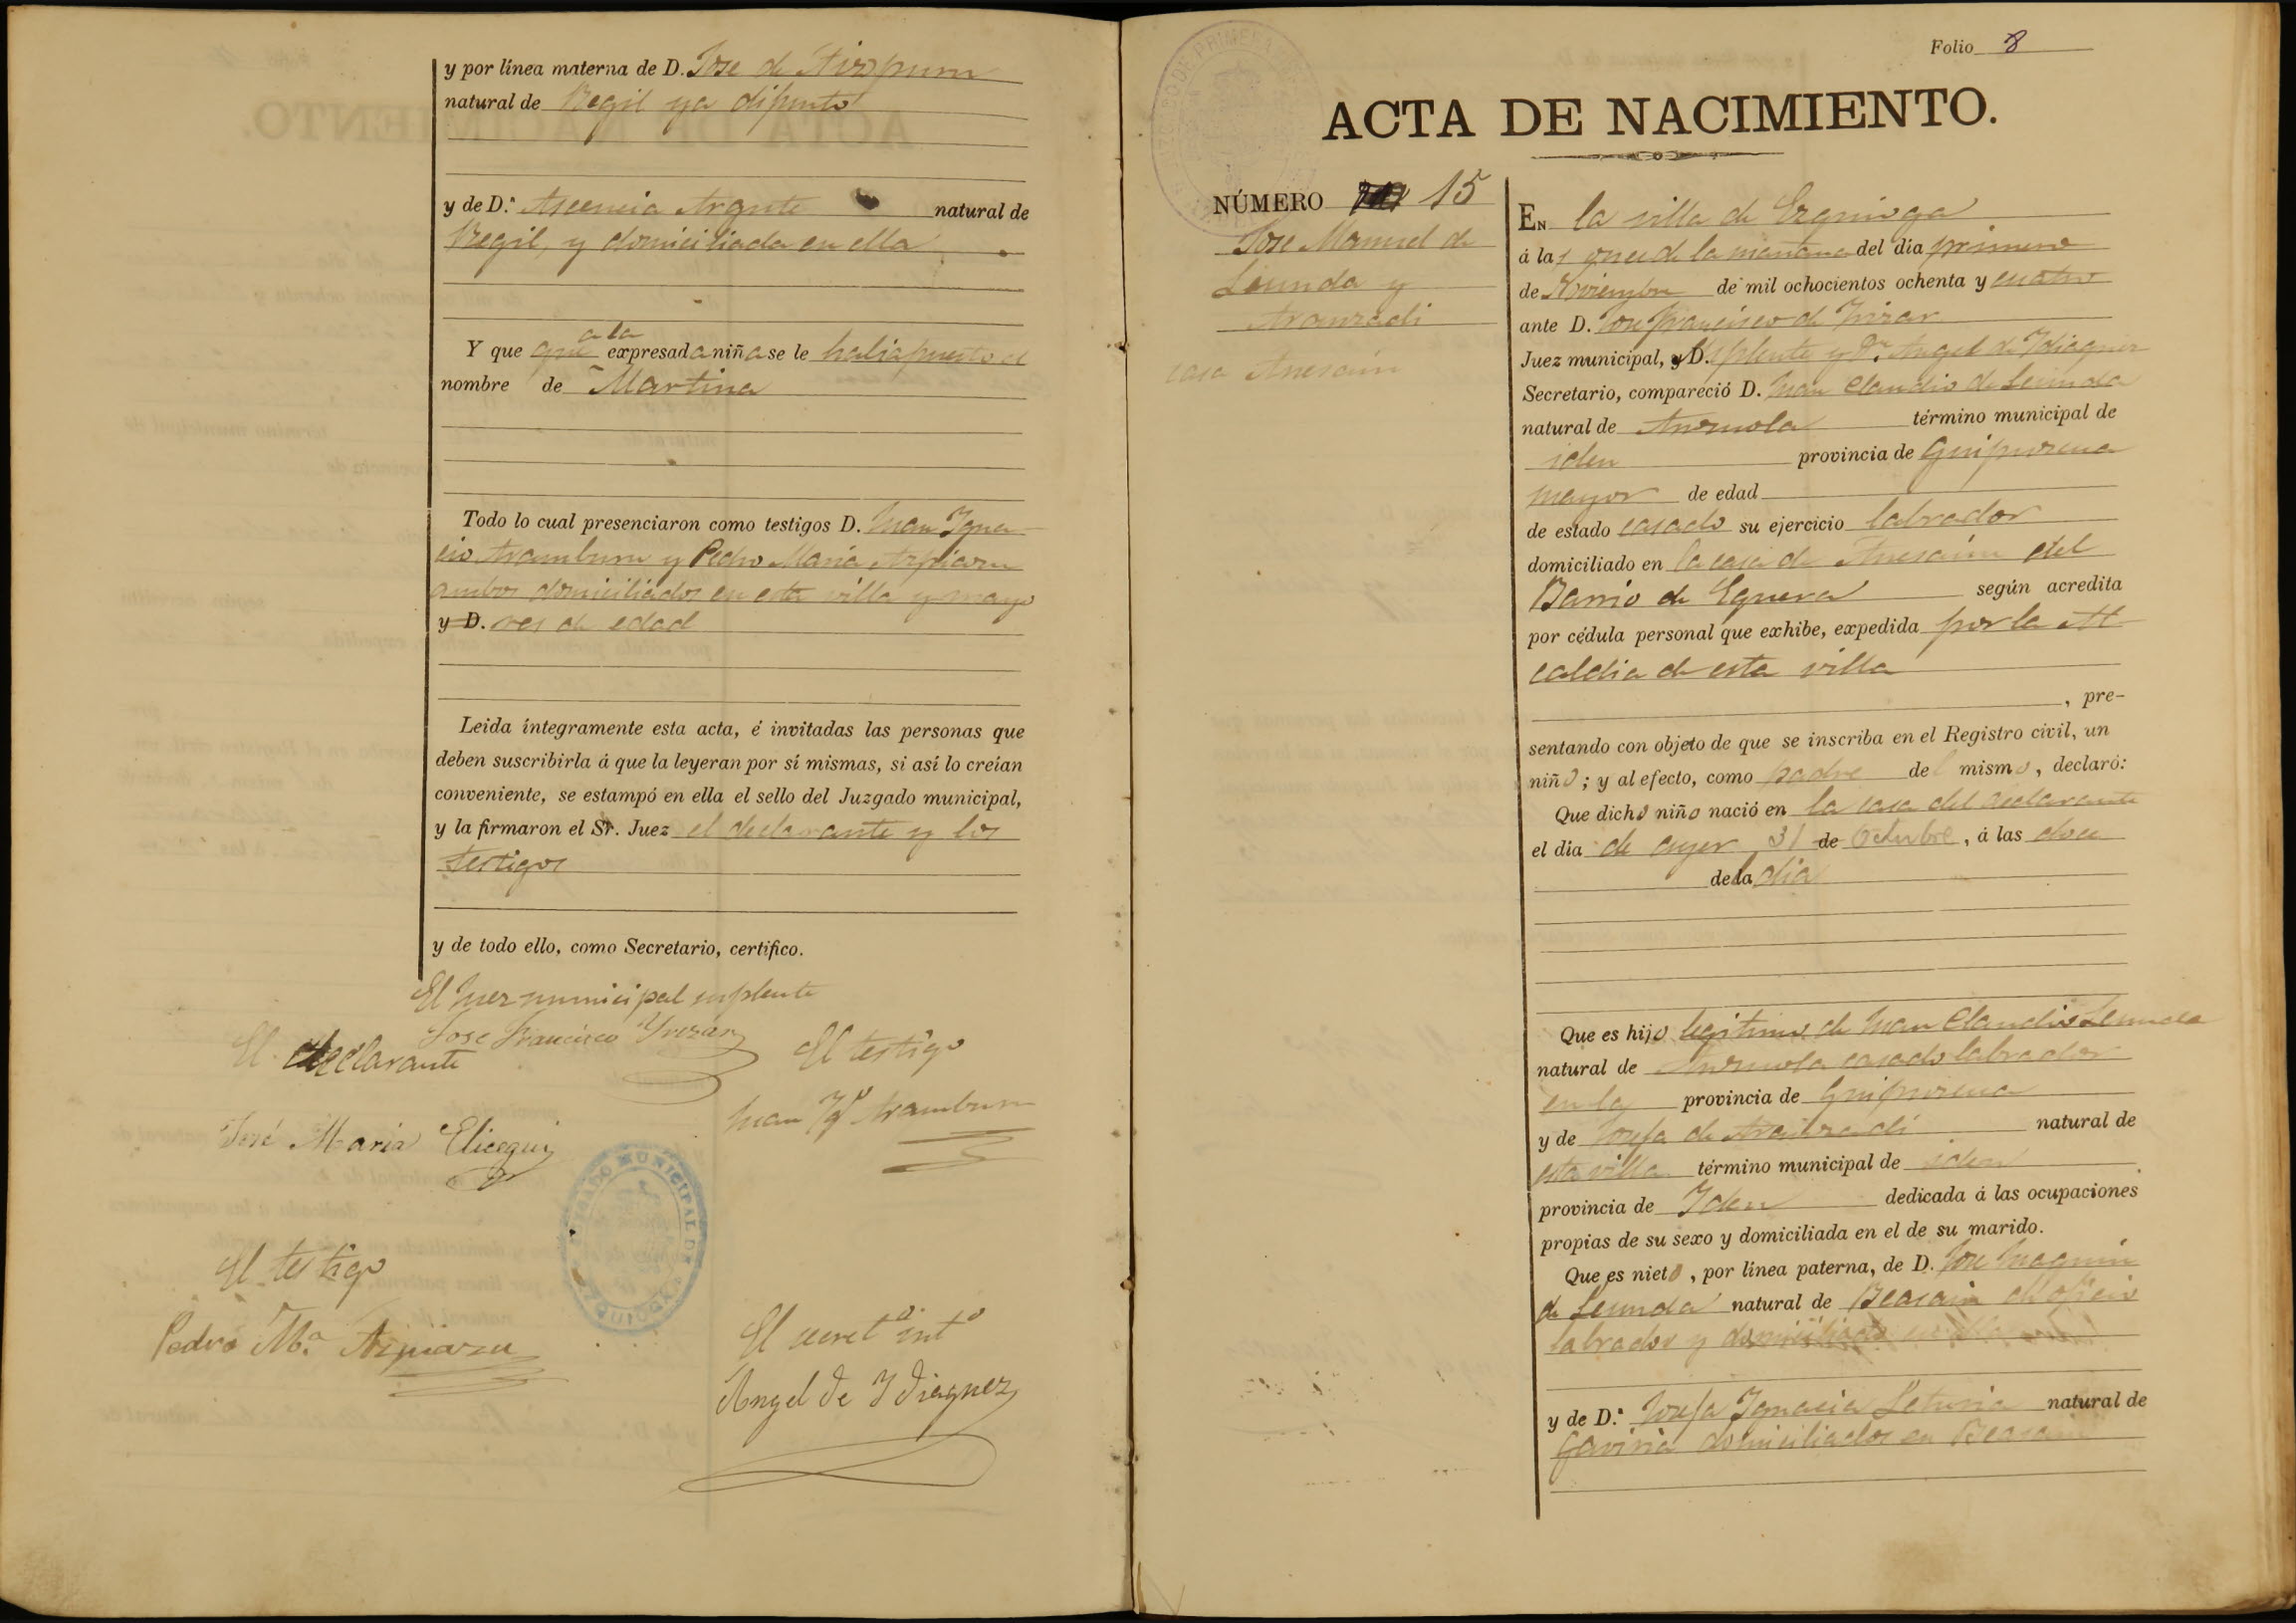 y por línea materna de D. Jose de
natural de Regil ya difunto
y de D.ª Ascencia Argote natural de
Regil, y domiciliada en ella
a la
Y que que expresada niña se le había puesto el
nombre de Martina
Todo lo cual presenciaron como testigos D. Juan Igna-
cio Aramburu y Pedro María Azpiazu
ambos domiciliados en esta villa y mayo
y D. res de edad
Leida íntegramente esta acta, é invitadas las personas que
deben suscribirla á que la leyeran por sí mismas, si así lo creían
conveniente, se estampó en ella el sello del Juzgado municipal,
y la firmaron el Sr. Juez el declarante y los
testigos
y de todo ello, como Secretario, certifico.
El Juez municipal suplente
Jose Francisco Yrizar
El declarante
El testigo
Juan Ygº Aramburu
José Maria Elicegui
JUZGADO MUNICIPAL DE
El testigo
Pedro Mª Azpiazu
El secretº intº
Angel de Ydiaquez
Folio 8
ACTA DE NACIMIENTO.
NÚMERO 15
Jose Manuel de
Lecunda y
Aranzadi
casa
EN la villa de Ezquioga
á las once de la mañana del día primero
de Noviembre de mil ochocientos ochenta y cuatro
ante D. Jose Francisco de Irizar
Juez municipal, y D. suplente y Dn. Angel de Ydiaquez
Secretario, compareció D. Juan Claudio de Lecunda
natural de Anzuola término municipal de
iden provincia de Guipuzcua
mayor de edad
de estado casado su ejercicio labrador
domiciliado en la casa de del
Barrio de Eguera según acredita
por cédula personal que exhibe, expedida por la Al-
caldia de esta villa
, pre-
sentando con objeto de que se inscriba en el Registro civil, un
niño; y al efecto, como padre del mismo, declaró:
Que dicho niño nació en la casa del declarante
el día de ayer 31 de Octubre, á las doce
de la dia
Que es hijo legitimo de Juan Claudio Lecunda
natural de Anzuola casado labrador
en la provincia de Guipuzcua
y de Josefa de Aranzadi natural de
esta villa término municipal de iden
provincia de Iden dedicada á las ocupaciones
propias de su sexo y domiciliada en el de su marido.
Que es nieto, por línea paterna, de D. Jose Juaquin
de Lecunda natural de Beasain de oficio
labrador y domiciliado en ella
y de D.ª Josefa Ignacia Leturia natural de
Gaviria domiciliados en Beasain